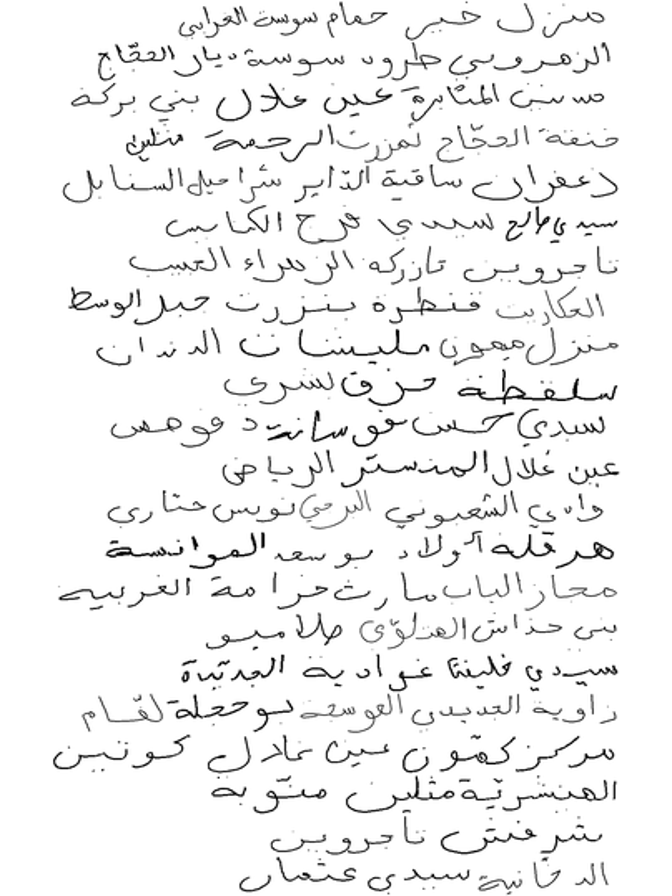 منزل خير حمام سوسة الغرابي
الزهروني طرود سوسة ديار الحجّاج
المثابرة عين غلال بني بركة
خنقة الحجّاج تمزرت الرحمة متلين
زعفران ساقية الدّاير شراحيل السنابل
سيدي صالح سيدي فرج الكبايس
تاجروين تازركه الزهراء
العكاريت قنطرة بنزرت جبل الوسط
منزل ميمون مليسات الدندان
سلقطة حزق يسري
سيدي حسن فوسانة دقوهص
عين غلال المنستر الرياض
وادي الشعبوني البرجي تونس
هرقلة أولاد بوسعد الموانسة
مجاز الباب مارث حزامة الغربية
بني حداش الهذلوّي صلامبو
سيدي خليفة غوادية الجديّدة
زاوية الجديدي العوسجة بوحجلة لقّام
مركز كمّون عين غلال كونين
الهنشريّة متلين منّوبة
شرفش تاجروين
الدخانية سيدي عثمان